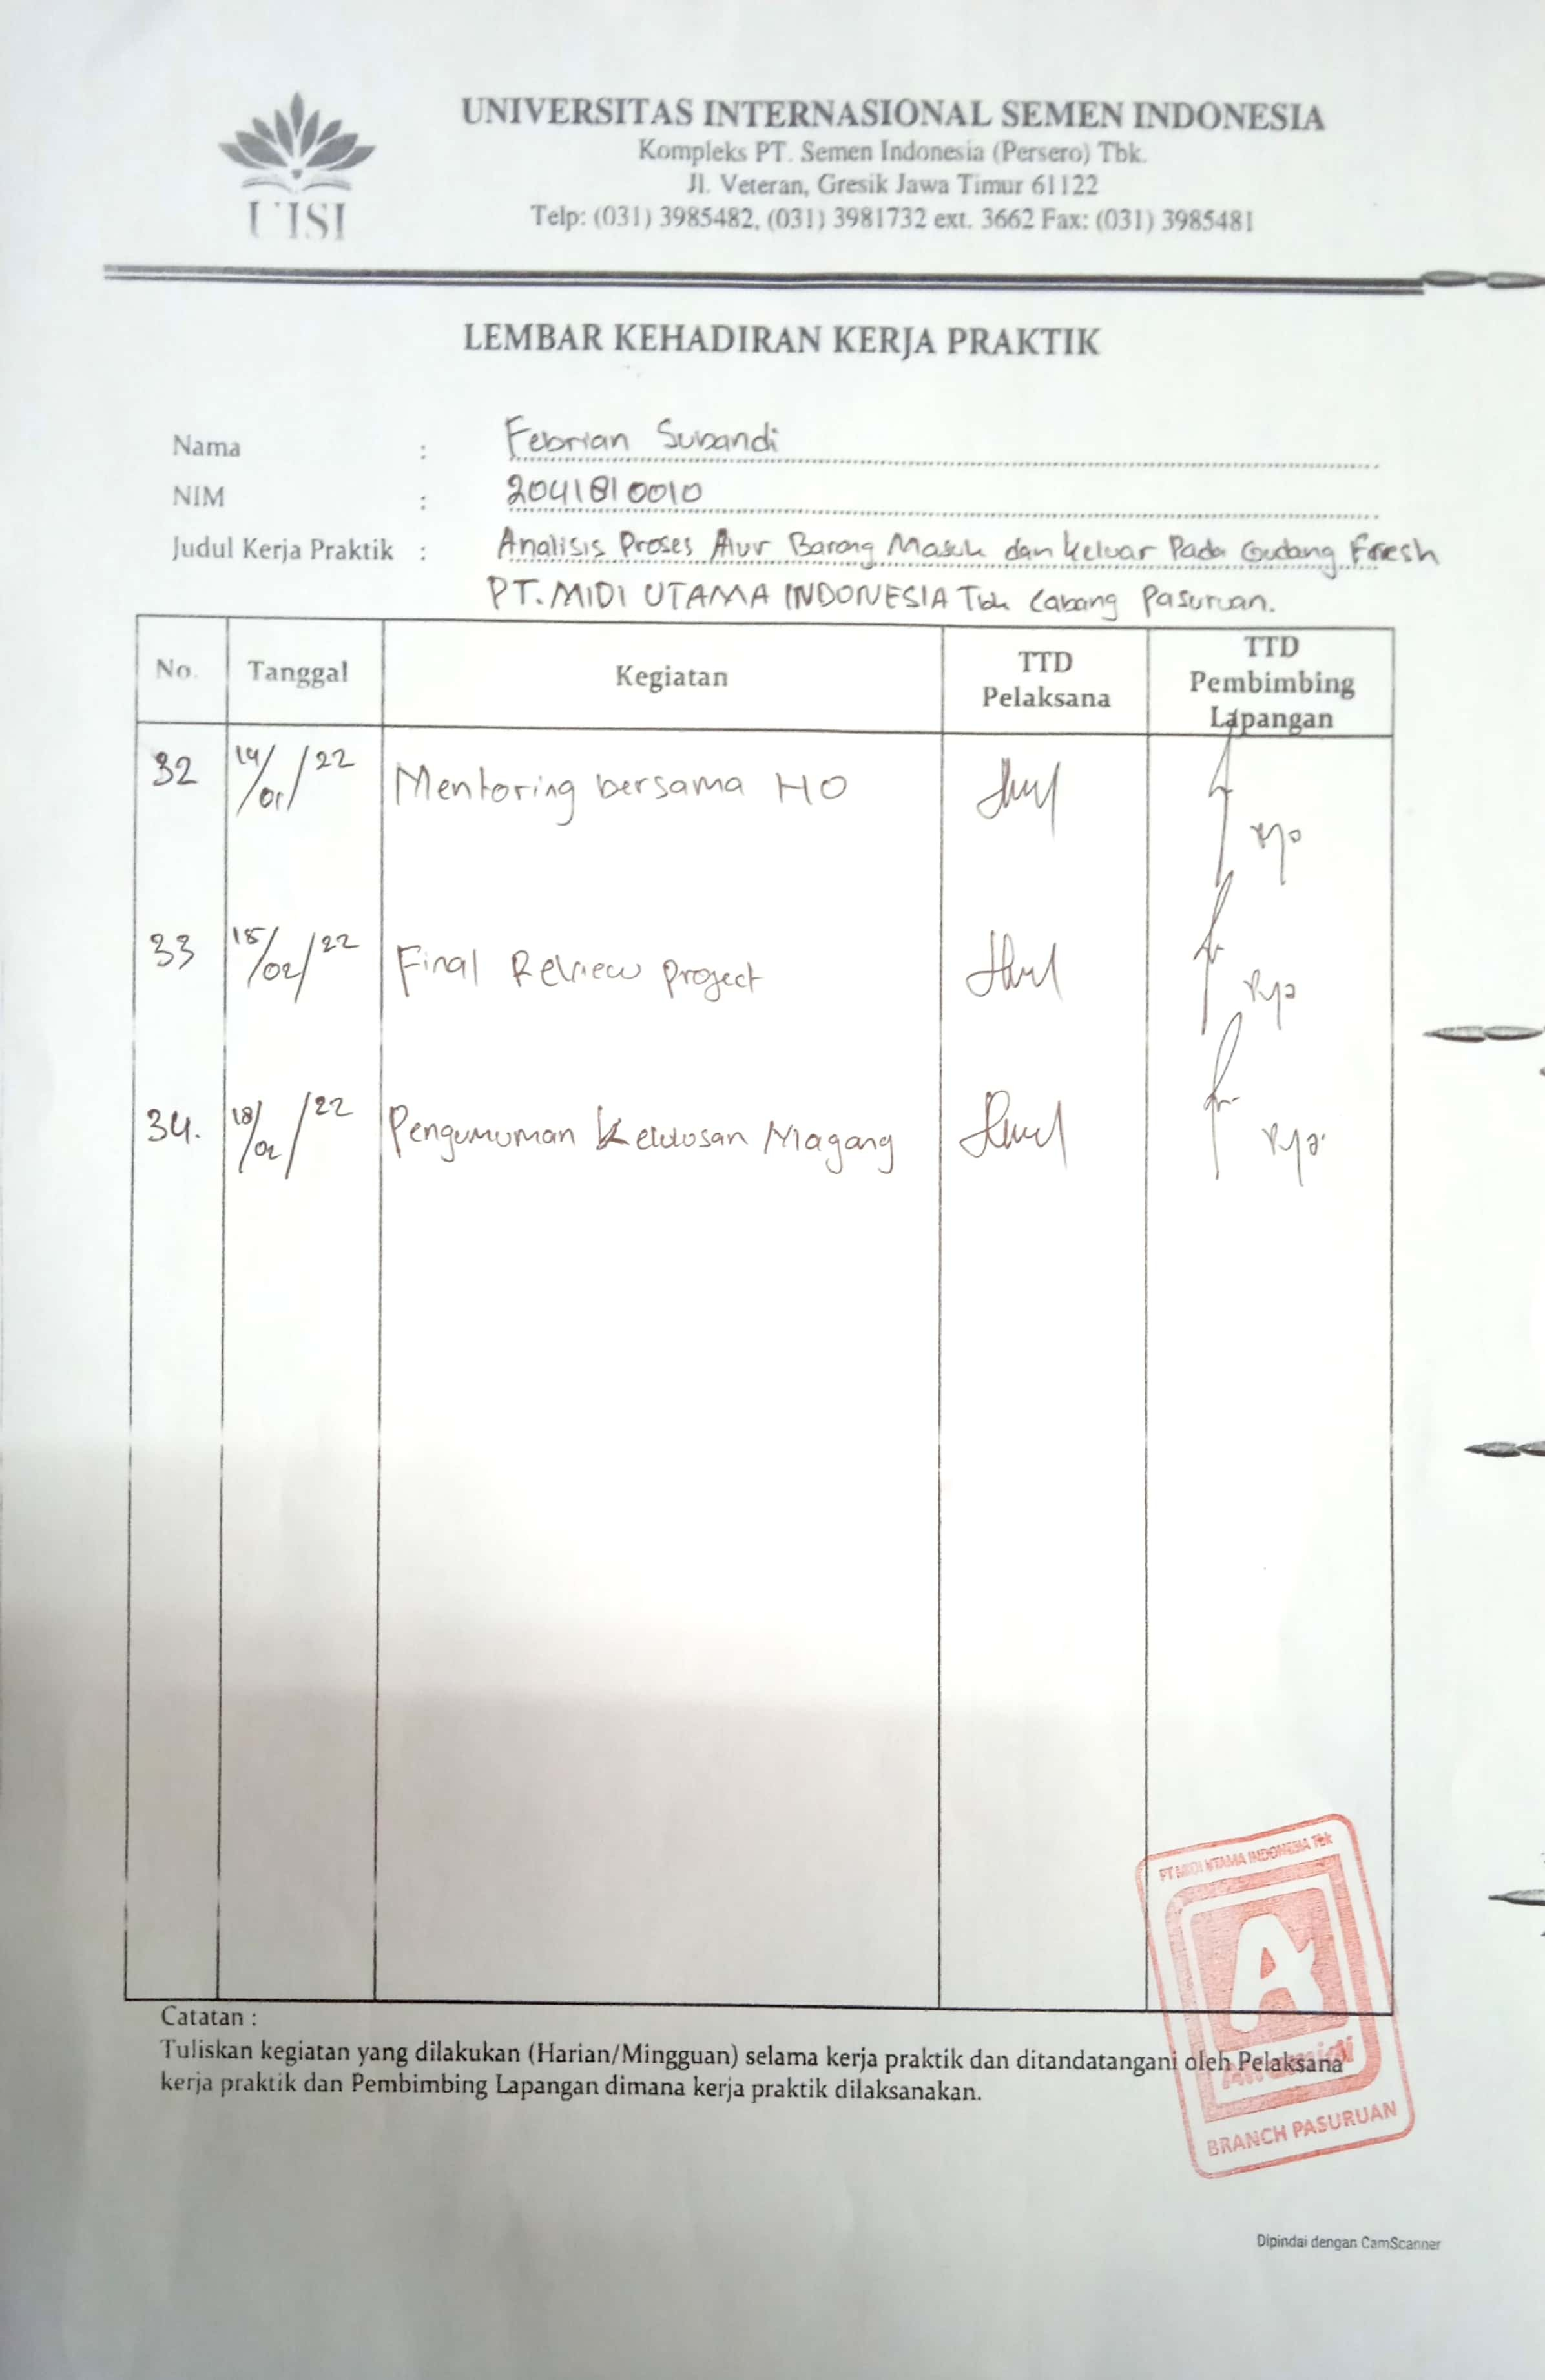 UNIVERSITAS INTERNASIONAL SEMEN INDONESIA
Kompleks PT. Semen Indonesia (Persero) Tbk.
Jl. Veteran, Gresik Jawa Timur 61122
Telp: (031) 3985482, (031) 3981732 ext. 3662 Fax: (031) 3985481
UISI
LEMBAR KEHADIRAN KERJA PRAKTIK
Nama : Febrian Subandi
NIM : 2041810010
Judul Kerja Praktik : Analisis Proses Alur Barang Masuk dan Keluar Pada Gudang Fresh
PT. MIDI UTAMA INDONESIA Tbk Cabang Pasuruan.
No. Tanggal Kegiatan TTD Pelaksana TTD Pembimbing Lapangan
32 14/01/22 Mentoring bersama HO
33 15/02/22 Final Review project
34. 18/02/22 Pengumuman Kelulusan Magang
PT MIDI UTAMA INDONESIA Tbk
A
Alfamidi
BRANCH PASURUAN
Catatan :
Tuliskan kegiatan yang dilakukan (Harian/Mingguan) selama kerja praktik dan ditandatangani oleh Pelaksana
kerja praktik dan Pembimbing Lapangan dimana kerja praktik dilaksanakan.
Dipindai dengan CamScanner